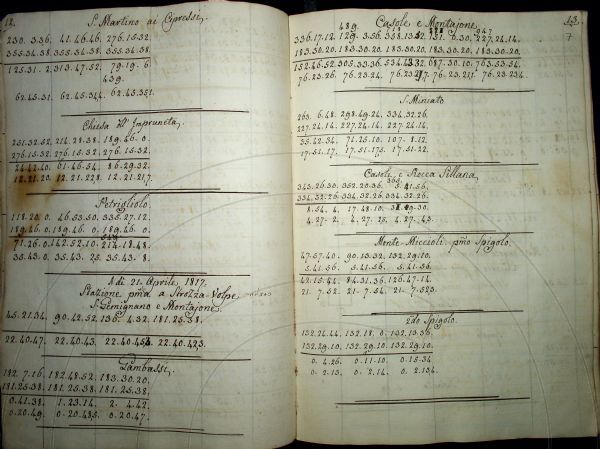 12.
S. Martino ai Cipressi.
230. 3.36. 41.46.46. 276.15.32.
355.34.38. 355.34.38. 355.34.38.
125.31.2. 313.47.52. 79.19.6
439.
62.45.31. 62.45.34. 62.45.35.
Chiesa dell' Impruneta.
251.32.52. 214.28.38. 189.46.0.
276.15.32. 276.15.32. 276.15.32.
24.42.40. 61.46.54. 86.29.32.
12.21.20. 12.21.22. 12.21.21.
Petrigliolo.
118.20.0. 46.53.50. 335.27.12.
189.46.0. 189.46.0. 189.46.0.
71.26.0. 142.52.10. 214.18.48.
35.43.0. 35.43.2. 35.43.8.
Adì 21. Aprile, 1817.
Stazione pma a Strozza-Volpe
S. Gemignano e Montajone.
45.21.34. 90.42.52. 136.4.32. 181.25.38.
22.40.47. 22.40.43. 22.40.45. 22.40.42.
Gambassi.
182.7.16. 182.48.52. 183.30.20.
181.25.38. 181.25.38. 181.25.38.
0.41.38. 1.23.14. 2.4.42.
0.20.49. 0.20.48. 0.20.47.
13.
Casole e Montajone.
489.
336.17.12. 129.3.56. 227.24.14.
183.30.20. 183.30.20. 183.30.20. 183.30.20. 183.30.20.
152.46.52. 305.33.36. 687.30.10. 763.53.54.
76.23.26. 76.23.24. 76.23.23.
S. Miniato.
263.6.48. 298.49.24. 334.32.26.
227.24.14. 227.24.14. 227.24.14.
35.42.34. 71.25.10. 107.8.12.
17.51.17. 17.51.17. 17.51.22.
Casole e Rocca Sillana.
360
343.26.30. 352.20.36. 5.41.56.
334.32.26. 334.32.26. 334.32.26.
8.54.4. 17.48.10.
4.27.2. 4.27.2. 4.27.43.
Monte-Miccioli pmo Spigolo.
47.57.40. 90.13.32. 132.29.10.
5.41.56. 5.41.56. 5.41.56.
42.15.44. 84.31.36. 126.47.14.
21.7.52. 21.7.54. 21.7.52.
2do Spigolo.
132.24.44. 132.18.0. 132.13.36.
132.29.10. 132.29.10. 132.29.10.
0.4.26. 0.11.10. 0.15.34
0.2.13. 0.2.14. 0.2.134.